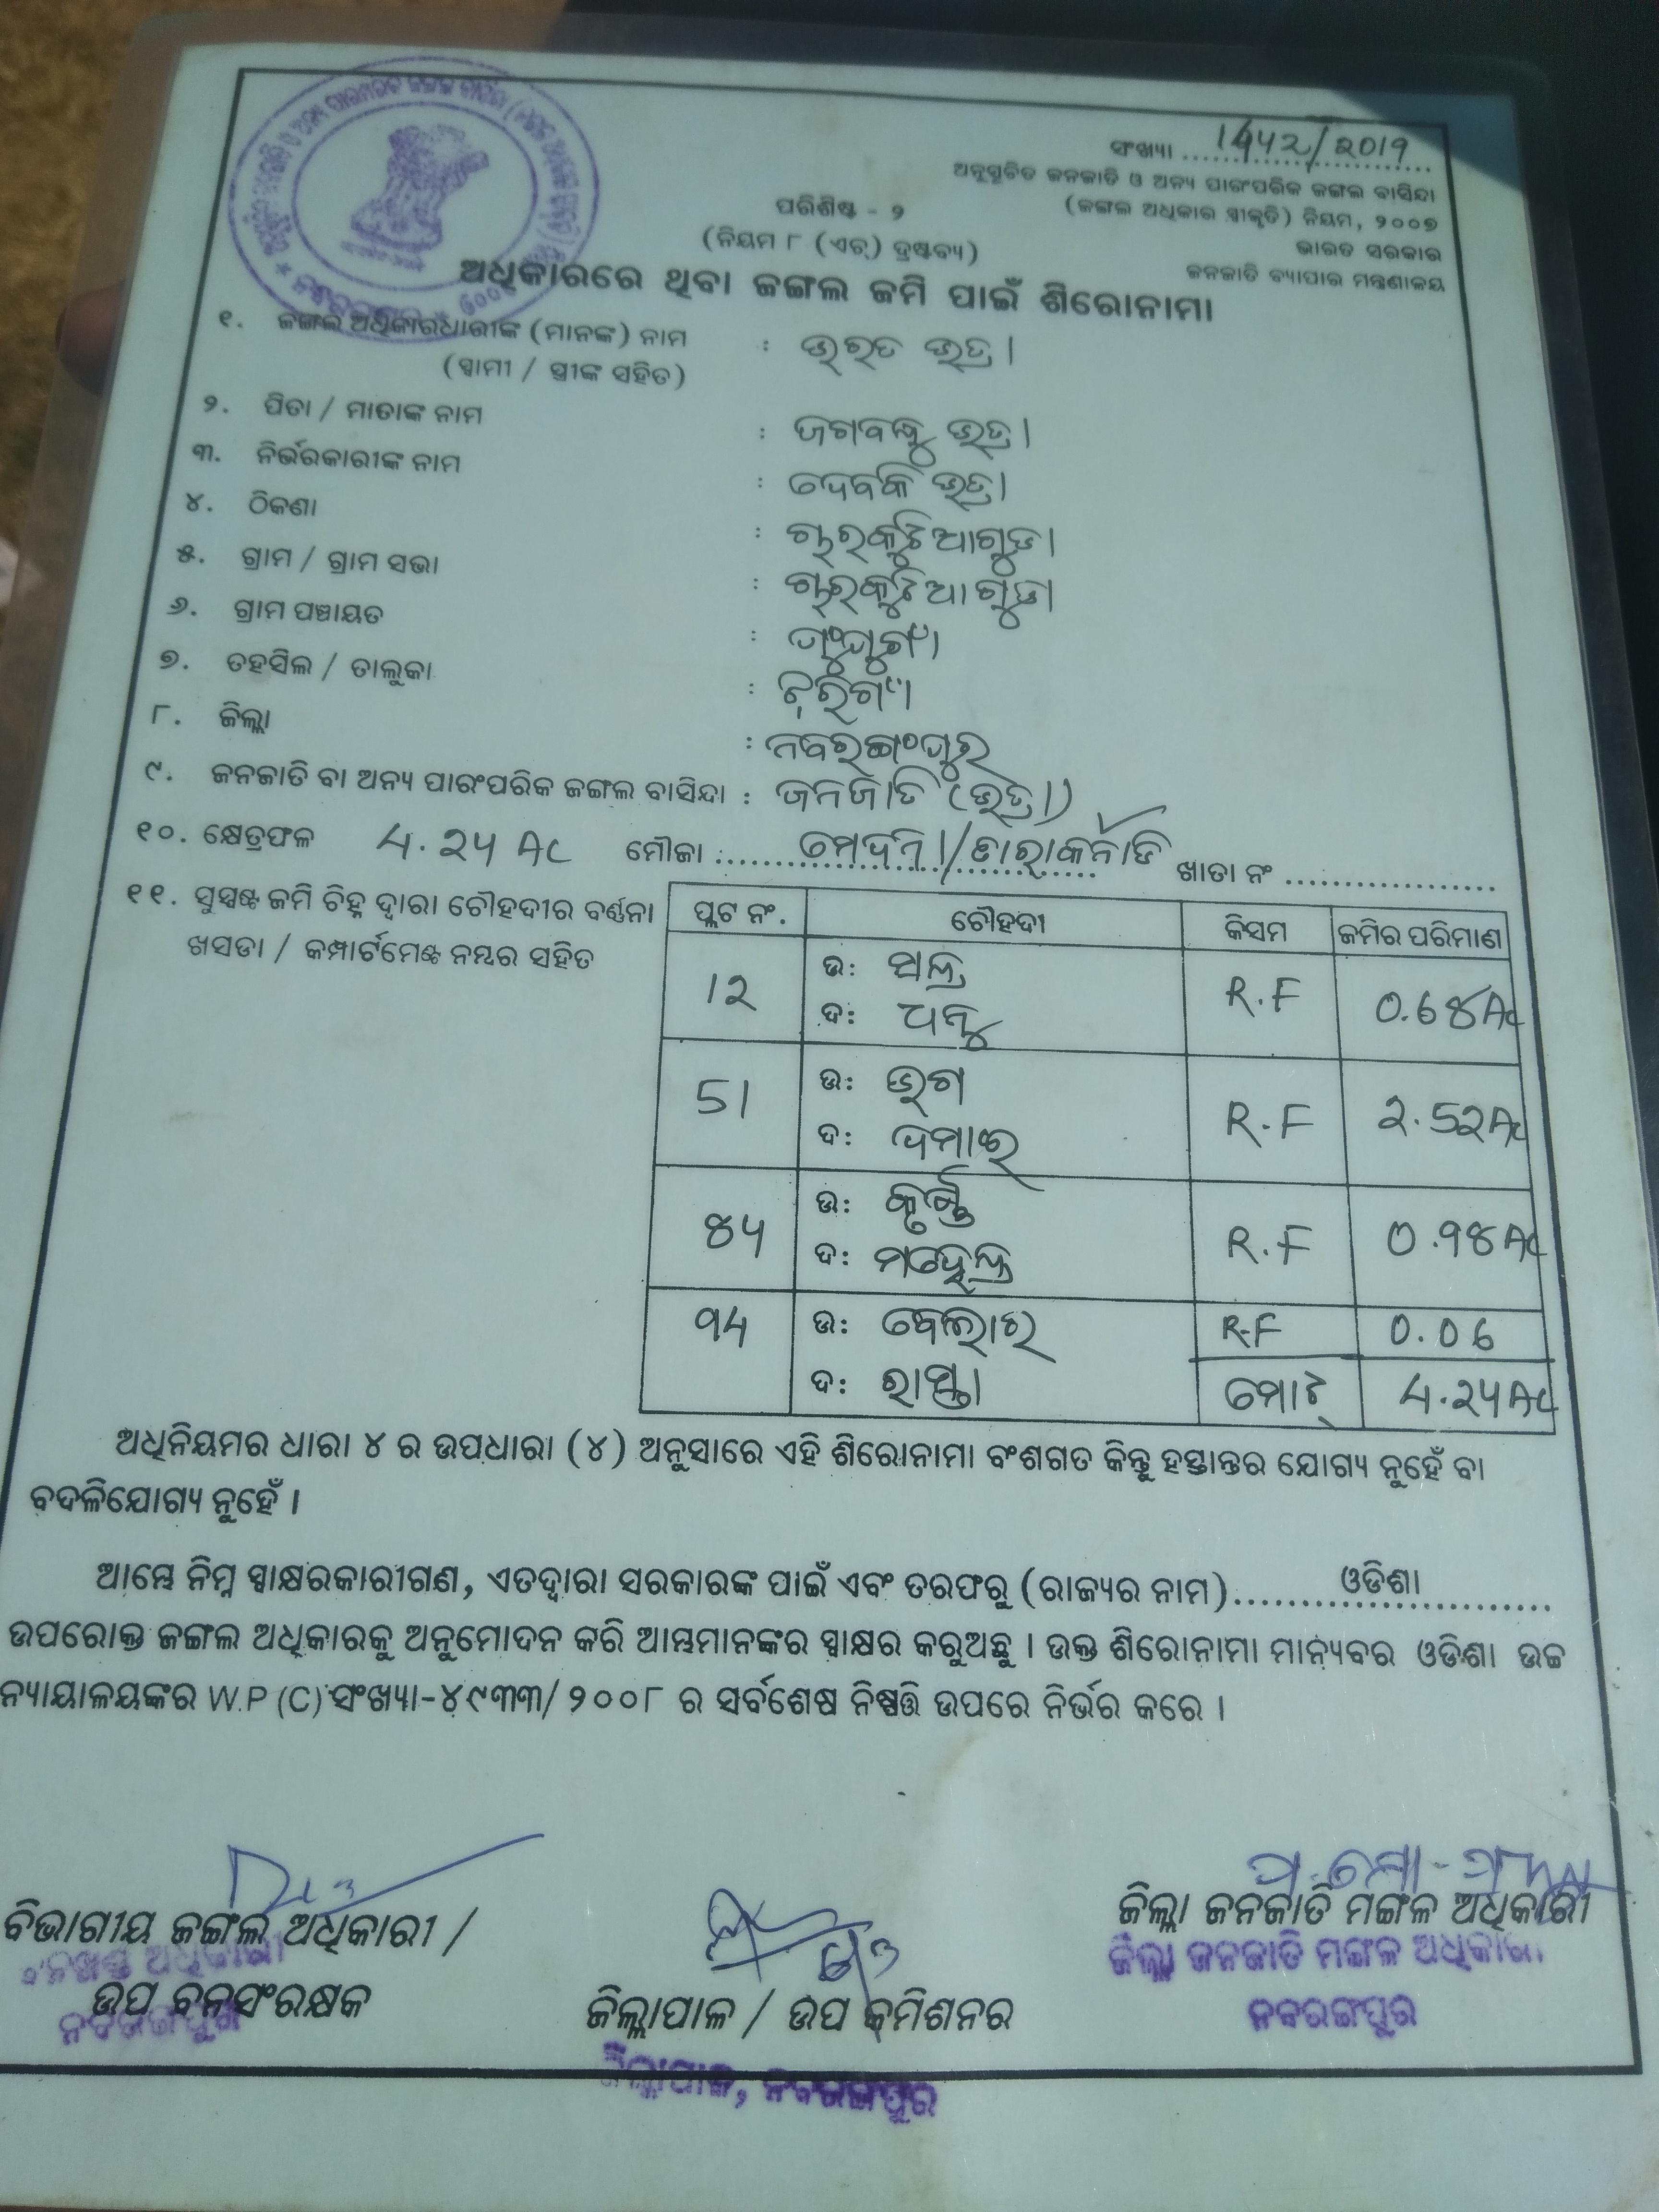 ସଂଖ୍ୟା ..... 1442/2019
ଅନୁସୂଚିତ ଜନଜାତି ଓ ଅନ୍ୟ ପାରଂପରିକ ଜଙ୍ଗଲ ବାସିନ୍ଦା
(ଜଙ୍ଗଲ ଅଧିକାର ସ୍ୱୀକୃତି) ନିୟମ, ୨୦୦୭
ଭାରତ ସରକାର
ଜନଜାତି ବ୍ୟାପାର ମନ୍ତ୍ରଣାଳୟ
ପରିଶିଷ୍ଟ - ୨
(ନିୟମ ୮ (ଏଚ୍) ଦ୍ରଷ୍ଟବ୍ୟ)
ଅଧିକାରରେ ଥିବା ଜଙ୍ଗଲ ଜମି ପାଇଁ ଶିରୋନାମା
୧. ଜଙ୍ଗଲ ଅଧିକାରଧାରୀଙ୍କ (ମାନଙ୍କ) ନାମ : ଭରତ ଭତ୍ରା
(ସ୍ୱାମୀ / ସ୍ତ୍ରୀଙ୍କ ସହିତ)
୨. ପିତା / ମାତାଙ୍କ ନାମ : ଜଗବନ୍ଧୁ ଭତ୍ରା
୩. ନିର୍ଭରକାରୀଙ୍କ ନାମ : ଦେବକି ଭତ୍ରା
୪. ଠିକଣା : ଖରକୁଟିଆଗୁଡା
୫. ଗ୍ରାମ / ଗ୍ରାମ ସଭା : ଖରକୁଟିଆଗୁଡା
୬. ଗ୍ରାମ ପଞ୍ଚାୟତ :
୭. ତହସିଲ / ତାଲୁକା :
୮. ଜିଲ୍ଲା : ନବରଙ୍ଗପୁର
୯. ଜନଜାତି ବା ଅନ୍ୟ ପାରଂପରିକ ଜଙ୍ଗଲ ବାସିନ୍ଦା : ଜନଜାତି (ଭତ୍ରା)
୧୦. କ୍ଷେତ୍ରଫଳ 4.24 Ac ମୌଜା ..... ଖାତା ନଂ .....
୧୧. ସୁସ୍ପଷ୍ଟ ଜମି ଚିହ୍ନ ଦ୍ୱାରା ଚୌହଦୀର ବର୍ଣ୍ଣନା
ଖସଡା / କମ୍ପାର୍ଟମେଣ୍ଟ ନମ୍ବର ସହିତ
ପ୍ଲଟ ନଂ. ଚୌହଦୀ କିସମ ଜମିର ପରିମାଣ
12 ଉ: R.F 0.68Ac
ଦ: ଧନୁ
51 ଉ: ଭଗ R.F 2.52Ac
ଦ: ଦମାଇ
84 ଉ: R.F 0.98Ac
ଦ: ମହେନ୍ଦ୍ର
94 ଉ: ବେଲାର R.F 0.06
ଦ: ରାସ୍ତା ମୋଟ 4.24Ac
ଅଧିନିୟମର ଧାରା ୪ ର ଉପଧାରା (୪) ଅନୁସାରେ ଏହି ଶିରୋନାମା ବଂଶଗତ କିନ୍ତୁ ହସ୍ତାନ୍ତର ଯୋଗ୍ୟ ନୁହେଁ ବା
ବଦଳିଯୋଗ୍ୟ ନୁହେଁ ।
ଆମ୍ଭେ ନିମ୍ନ ସ୍ୱାକ୍ଷରକାରୀଗଣ, ଏତଦ୍ୱାରା ସରକାରଙ୍କ ପାଇଁ ଏବଂ ତରଫରୁ (ରାଜ୍ୟର ନାମ)..... ଓଡିଶା .....
ଉପରୋକ୍ତ ଜଙ୍ଗଲ ଅଧିକାରକୁ ଅନୁମୋଦନ କରି ଆମ୍ଭମାନଙ୍କର ସ୍ୱାକ୍ଷର କରୁଅଛୁ । ଉକ୍ତ ଶିରୋନାମା ମାନ୍ୟବର ଓଡିଶା ଉଚ୍ଚ
ନ୍ୟାୟାଳୟଙ୍କର W.P (C) ସଂଖ୍ୟା-୪୯୩୩/୨୦୦୮ ର ସର୍ବଶେଷ ନିଷ୍ପତ୍ତି ଉପରେ ନିର୍ଭର କରେ ।
ବିଭାଗୀୟ ଜଙ୍ଗଲ ଅଧିକାରୀ /
ଉପ ବନସଂରକ୍ଷକ
ନବରଙ୍ଗପୁର
ଜିଲ୍ଲାପାଳ / ଉପ କମିଶନର
ଜିଲ୍ଲାପାଳ, ନବରଙ୍ଗପୁର
ଜିଲ୍ଲା ଜନଜାତି ମଙ୍ଗଳ ଅଧିକାରୀ
ଜିଲ୍ଲା ଜନଜାତି ମଙ୍ଗଳ ଅଧିକାରୀ
ନବରଙ୍ଗପୁର